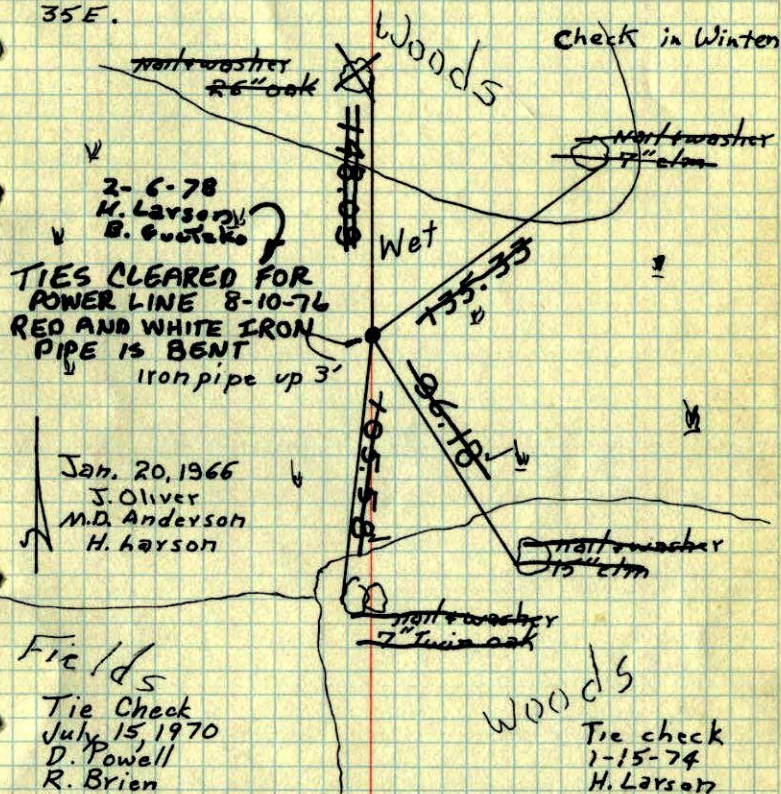 35E.
Woods
Check in Winter
Nail & washer
26" oak
Nail & washer
7" elm
148.09
2-6-78
H. Larson
B.
Wet
TIES CLEARED FOR
POWER LINE 8-10-76
RED AND WHITE IRON
PIPE IS BENT
Iron pipe up 3'
135.33
96.18
105.58
Jan. 20, 1966
J. Oliver
M.D. Anderson
H. Larson
nail & washer
15" elm
nail & washer
7" Twin oak
Fields
Woods
Tie Check
July 15, 1970
D. Powell
R. Brien
Tie check
1-15-74
H. Larson